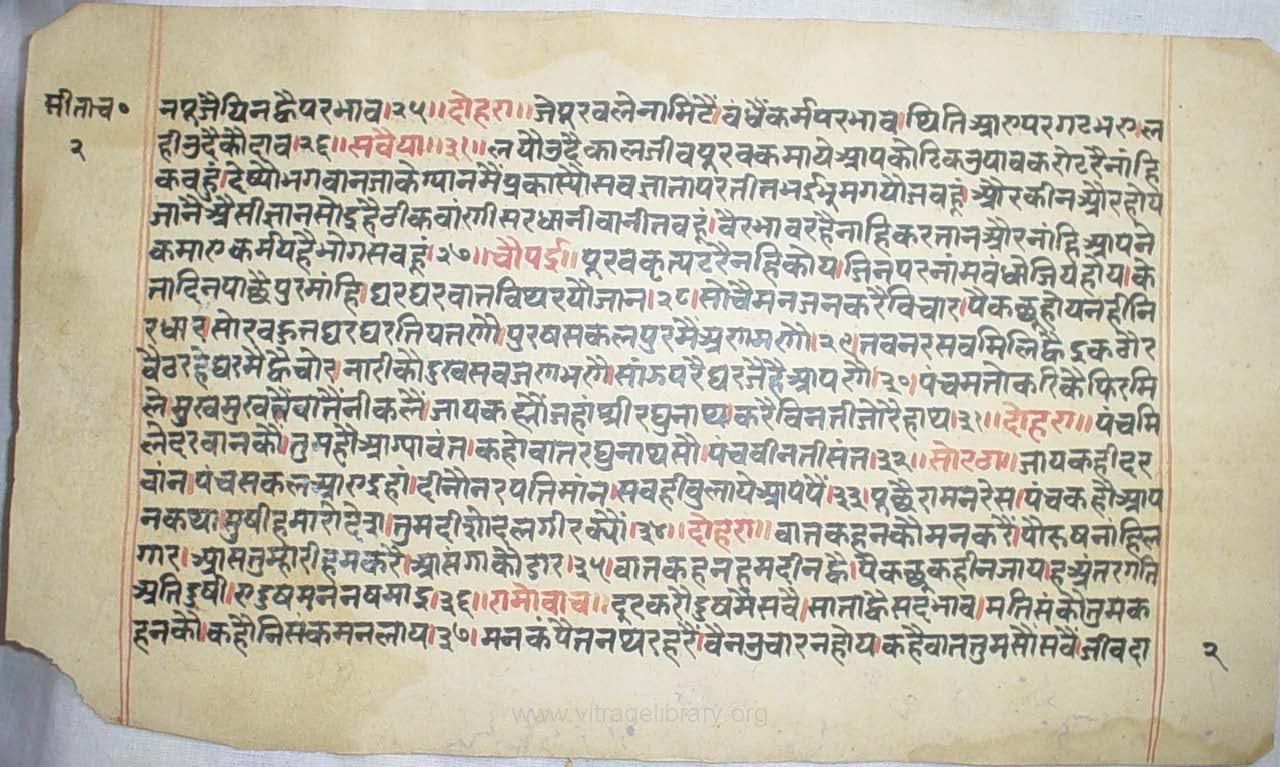 सीताच० नपूजैथिनह्वैपरभाव।२५॥दोहरा॥जेपूरवलेनामिटैं।बंधैंकर्मपरभाव।थितिआरुपरगटभरु।ल
२ हीउदैकौदाव।२६॥सवैया॥३१॥लयौउदैकालजीवपूरवकमायेआपकोटिकउपावकरोटरैनांहि
कबहुं।देष्यौभगवानजाकेग्यानमैंप्रकास्यौसबजातापरतीतभईभ्रुमगयौजबहूं।औरकीनऔरहोय
जानैअैसीजानसोइहैठीकबांरगीसरधानीबानीतबहूं।बैरभावरहैनाहिकरताजऔरनांहिआपने
कमारुकर्मयहैभोगसबहूं।२७॥चौपई॥पूरवकृत्यटरैनहिकोय।जिनपरनांमबंधोजियहोय।के
तादिनपाछैपुरमांहि।घरघरबातबिथरयौजान।२८।सोचैमनजनकरैविचार।पैकछूहोयनहीनि
रधार।सोरबडतघरघरतियतणौ।पुरषसकलपुरमैंअरामरणो।२९।तबनरसबमिलिह्वैइकठौर
बैठरहेघरमैह्वैचोर।नारीकौदुखसबजगभरौ।सांझपरैघरजैहैआपरौ।३०।पंचमतोकरिकैफिरमि
ले।मुखमुखतैंबातैंनीकलै।जायकह्यौंजहांश्रीरघुनाथ।करैविनतीजोरैहाथ।३१॥दोहरा॥पंचमि
लेदरबानकौ।तुमहौआग्यावंत।कहोबातरघुनाथसौ।पंचवीनतीसंत।३२॥सोरठा॥जायकहीदर
वांन।पंचसकलआरुइहां।दीनौनरपतिमांन।सबहीबुलायेआपपैं।३३।पूछैरामनरेस।पंचकहौआप
नकथा।सुषीहमारोदेश।तुमदीशेदलगीरक्यौं।३४॥दोहरा॥बातकहनकौमनकरैं।पौरुषनांहिल
गार।आसतुम्हारीहमकरै।आसंगाकौडार।३५।बातकहनहमदीनह्वै।पैकछूकहीनजाय।हअंतरगति
अतिदुषी।रुदुषमनेनषमाइ।३६॥रामोवाच॥दूरकरौदुषमैसबै।साताह्वैसदभाव।मतिसंकोतुमक
हनकौ।कहौनिसंकमनलाय।३७।मनकंपैतनथरहरैं।बैनउचारनहोय।कहैबाततुमसौसबै।जीवदा
२
www.vitragelibrary.org